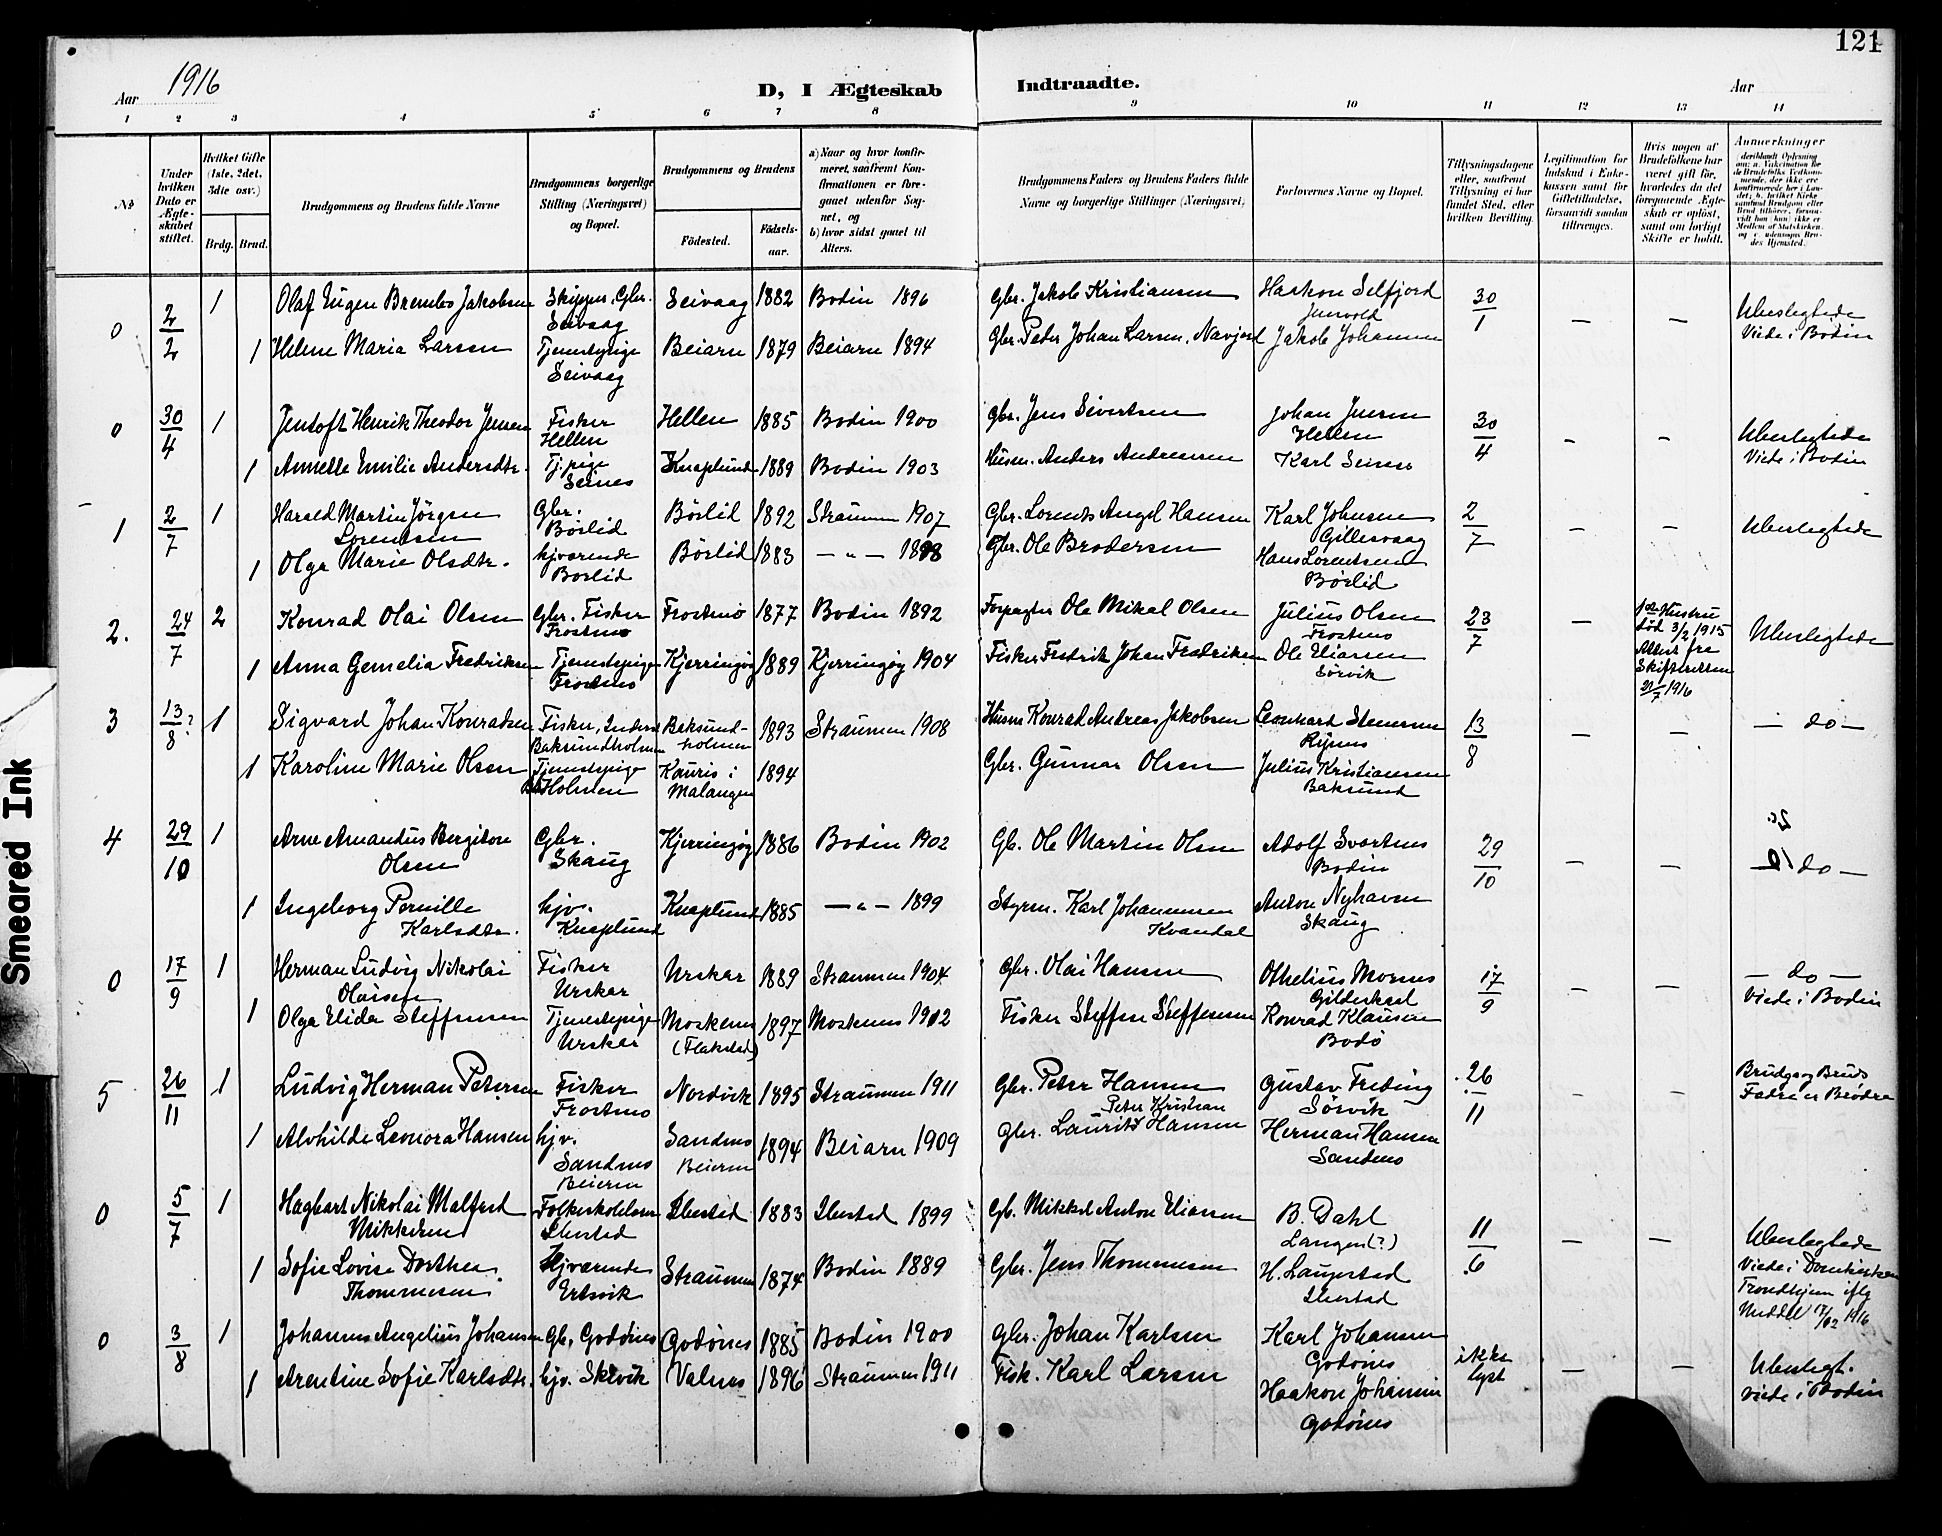 121
Aar 1916
D, I Ægteskab Indtraadte.
Aar
1 2 3 4 5 6 7 8 9 10 11 12 13 14
No
Under hvilken Dato er Ægteskabet stiftet.
Hvilket Gifte (1ste, 2det, 3die osv.)
Brdg. Brud.
Brudgommens og Brudens fulde Navne
Brudgommens borgerlige Stilling (Næringsvei) og Bopæl.
Brudgommens og Brudens
Födested. Födsels-aar.
a) Naar og hvor konfirmeret, saafremt Konfirmationen er foregaaet udenfor Sognet, og
b) hvor sidst gaaet til Alters.
Brudgommens Faders og Brudens Faders fulde Navne og borgerlige Stillinger (Næringsvei)
Forlovernes Navne og Bopæl.
Tillysningsdagene eller, saafremt Tillysning ei har fundet Sted, efter hvilken Bevilling.
Legitimation for Indskud i Enkekassen samt for Giftetilladelse, forsaavidt saadan tiltrænges.
Hvis nogen af Brudefolkene har været gift för, hvorledes da det foregaaende Ægteskab er oplöst, samt om lovligt Skifte er holdt.
Anmerkninger
0 2/2 1 Olaf Eugen Jakobsen Skipper, Gbr. Seivaag Seivaag 1882 Bodin 1896 Gbr. Jakob Kristiansen Haakon Selfjord 30/1 — — Ubeslegtede
Viede i Bodin
1 Helene Maria Larsen Tjenestepige Seivaag Beiarn 1879 Beiarn 1894 Gbr. Peder Johan Larsen, Navjord Jakob Johansen
0 30/4 1 Jentoft Henrik Theodor Jensen Fisker Hellen Hellen 1885 Bodin 1900 Gbr. Jens Sivertsen Johan Jensen Hellen 30/4 — — Ubeslegtede
Viede i Bodin
1 Annette Emilie Andersdtr. Tj.pige Seines Knaplund 1889 Bodin 1903 Husm. Anders Andreassen Karl Seines
1 2/7 1 Harald Martin Jörgen Lorentsen Gbr. Börlid Börlid 1892 Straumen 1907 Gbr. Lorents Angel Hansen Karl Johnsen Gillesvaag 2/7 — — Ubeslegtede
1 Olga Marie Olsdtr. hjværende Börlid Börlid 1883 — " — 1898 Gbr. Ole Brodersen Hans Lorentsen Börlid
2. 24/7 2 Konrad Olai Olsen Gbr. Fisker Frostmo Frostmo 1877 Bodin 1892 Forpagter Ole Mikal Olsen Julius Olsen Frostmo 23/7 — 1ste Hustru död 3/2 1915 Attest fra Skifteretten 21/7 1916 Ubeslegtede
1 Anna Gemelia Fredriksen Tjenestepige Frostmo Kjerringöy 1889 Kjerringöy 1904 Fisker Fredrik Johan Fredriksen Ole Eliassen Sörvik
3 13/8 ? 1 Sigvard Johan Konradsen Fisker, Baksundholmen Baksundholmen 1893 Straumen 1908 Husm Konrad Andreas Jakobsen Leonhard Stensen 13/8 — — — do —
1 Karoline Marie Olsen Tjenestepige Holmen Kauris i Malangen 1894 Gbr. Gunnar Olsen Julius Kristiansen Baksund
4 29/10 1 Arne Amandus Bergiton Olsen Gbr. Skaug Kjerringöy 1886 Bodin 1902 Gb. Ole Martin Olsen Adolf Svartnes Bodin 29/10 — — — do —
1 Ingeborg Pernille Karlsdtr. hjv. Knaplund Knaplund 1885 — " — 1899 Styrm. Karl Johannesen Kvandal Anton Nyhavn Skaug
0 17/9 1 Herman Ludvig Nikolai Olaisen Fisker Urskar Urskar 1889 Straumen 1904 Gbr. Olai Hansen Othelius Mornes Gildeskaal 17/9 — — — do —
Viede i Bodin
1 Olga Elida Steffensen Tjenestepige Urskar Moskenes (Flakstad) 1897 Moskenes 1912 Fisker Steffen Steffensen Konrad Klausen Bodö
5 26/11 1 Ludvig Herman Petersen Fisker Frostmo Nordvik 1895 Straumen 1911 Gbr. Peter Hansen Gustav Freding Sörvik 26/11 — — Brudg. og Bruds Fadre er Brödre
1 Alvhilde Leonora Hansen hjv. Sandnes Beiern Sandnes Beiern 1894 Beiarn 1909 Gbr. Peter Kristian Laurits Hansen Herman Hansen Sandnes
0 5/7 1 Hagbart Nikolai Malfred Mikkelsen Folkeskolelærer Ibestad Ibestad 1883 Ibestad 1899 Gb. Mikkel Anton Eliassen B. Dahl Langen (?) 11/6 — — Ubeslegtede
Viede i Domkirken Trondhjem iflg Meddel 7/02 1916
1 Sofie Lovise Dorthea Thommesen Hjværende Ertsvik Straumen 1874 Bodin 1889 Gbr. Jens Thommesen H. Laugestad Ibestad
0 3/8 1 Johannes Angelius Johansen Gb. Godönes Godönes 1885 Bodin 1900 Gbr. Johan Karlsen Karl Johansen Godönes ikke lyst — — Ubeslegt.
Viede i Bodin
1 Arentine Sofie Karlsdtr. hjv. Skevik Valnes 1896 Straumen 1911 Fisk. Karl Larsen Haakon Johansen Godönes
Smeared Ink